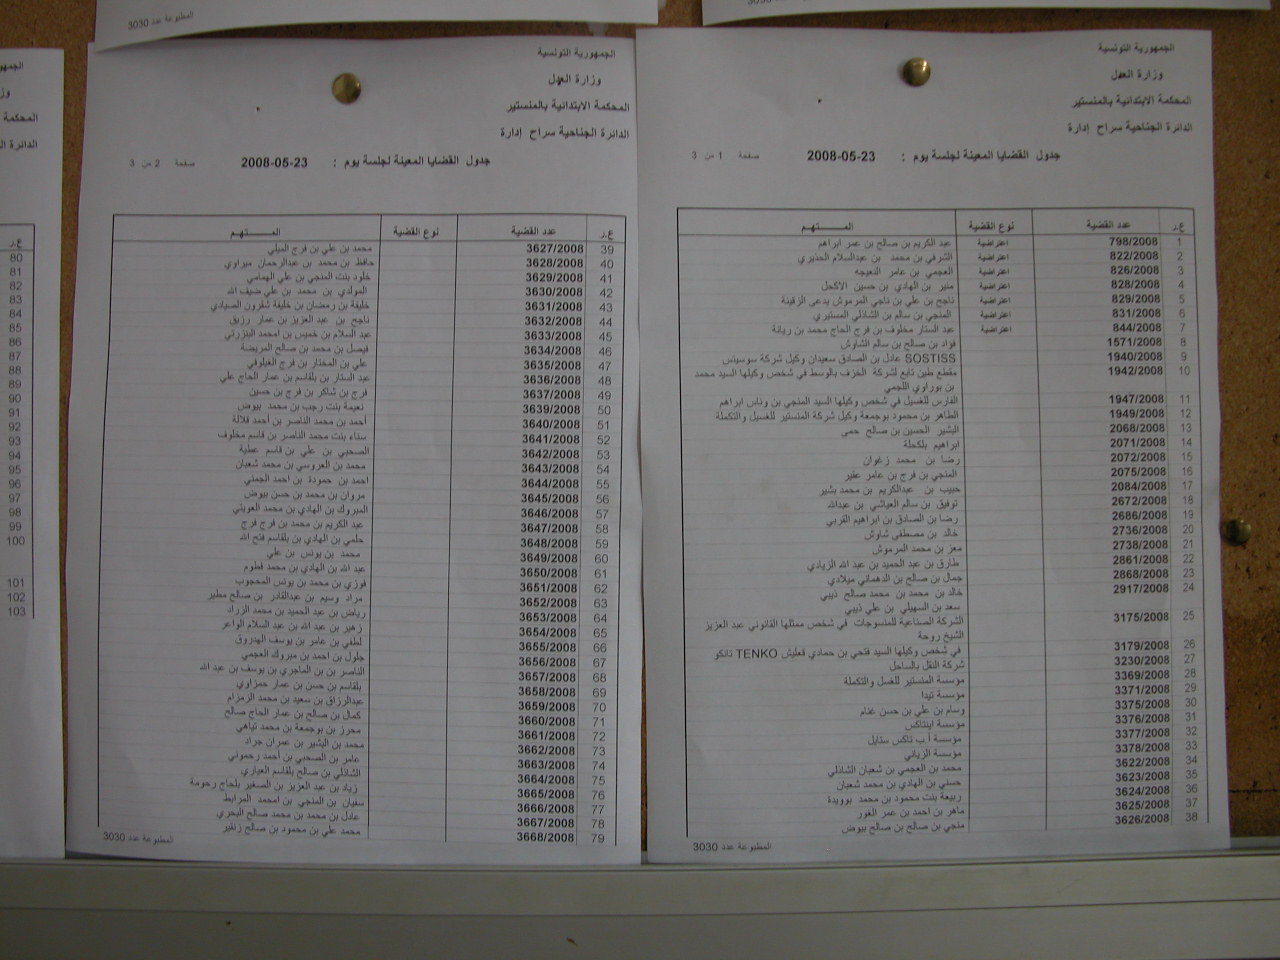 المطبوعة عدد 3030
الجمهورية التونسية
وزارة العدل
المحكمة الابتدائية بالمنستير
الدائرة الجناحية سراح إدارة
جدول القضايا المعينة لجلسة يوم : 23-05-2008 صفحة 1 من 3
ع.ر عدد القضية نوع القضية المتهم
1 798/2008 اعتراضية عبد الكريم بن صالح بن عمر ابراهم
2 822/2008 اعتراضية الشرفي بن محمد بن عبدالسلام الحذيري
3 826/2008 اعتراضية العجمي بن عامر النعيجه
4 828/2008 اعتراضية منير بن الهادي بن حسين الاكحل
5 829/2008 اعتراضية ناجح بن علي بن ناجي المرموش يدعى الرقينة
6 831/2008 اعتراضية المنجي بن سالم بن الشاذلي المستيري
7 844/2008 اعتراضية عبد الستار مخلوف بن فرج الحاج محمد بن ريانة
8 1571/2008 فؤاد بن صالح بن سالم الشاوش
9 1940/2008 SOSTISS عادل بن الصادق سعيدان وكيل شركة سوستيس
10 1942/2008 مقطع طين تابع لشركة الخزف بالوسط في شخص وكيلها السيد محمد
بن بوراوي اللجمي
11 1947/2008 الفارس للغسيل في شخص وكيلها السيد المنجي بن وناس ابراهم
12 1949/2008 الطاهر بن محمود بوجمعة وكيل شركة المنستير للغسيل والتكملة
13 2068/2008 البشير الحسين بن صالح حمى
14 2071/2008 ابراهيم بلكحلة
15 2072/2008 رضا بن محمد زغوان
16 2075/2008 المنجي بن فرج بن عامر عقير
17 2084/2008 حبيب بن عبدالكريم بن محمد بشير
18 2672/2008 توفيق بن سالم العياشي بن عبدالله
19 2686/2008 رضا بن الصادق بن ابراهيم القربي
20 2736/2008 خالد بن مصطفى شاوش
21 2738/2008 معز بن محمد المرموش
22 2861/2008 طارق بن عبد الحميد بن عبد الله الزيادي
23 2868/2008 جمال بن صالح بن الدهماني ميلادي
24 2917/2008 خالد بن محمد بن محمد صالح ذيبي
سعد بن السهيلي بن علي ذيبي
25 3175/2008 الشركة الصناعية للمنسوجات في شخص ممثلها القانوني عبد العزيز
الشيخ روحة
26 3179/2008 في شخص وكيلها السيد فتحي بن حمادي قعليش TENKO تانكو
27 3230/2008 شركة النقل بالساحل
28 3369/2008 مؤسسة المنستير للغسل والتكملة
29 3371/2008 مؤسسة تيدا
30 3375/2008 وسام بن علي بن حسن غنام
31 3376/2008 مؤسسة اينتاكس
32 3377/2008 مؤسسة أ ب تاكس ستايل
33 3378/2008 مؤسسة الزياني
34 3622/2008 محمد بن العجمي بن شعبان الشاذلي
35 3623/2008 حسني بن الهادي بن محمد شعبان
36 3624/2008 ربيعة بنت محمود بن محمد بوويدة
37 3625/2008 ماهر بن احمد بن عمر الغور
38 3626/2008 منجي بن صالح بن صالح بيوض
المطبوعة عدد 3030
الجمهورية التونسية
وزارة العدل
المحكمة الابتدائية بالمنستير
الدائرة الجناحية سراح إدارة
جدول القضايا المعينة لجلسة يوم : 23-05-2008 صفحة 2 من 3
ع.ر عدد القضية نوع القضية المتهم
39 3627/2008 محمد بن علي بن فرج الميلي
40 3628/2008 حافظ بن محمد بن عبدالرحمان ميراوي
41 3629/2008 خلود بنت المنجي بن علي الهمامي
42 3630/2008 المولدي بن محمد بن علي ضيف الله
43 3631/2008 خليفة بن رمضان بن خليفة شقرون الصيادي
44 3632/2008 ناجح بن عبد العزيز بن عمار رزيق
45 3633/2008 عبد السلام بن خميس بن امحمد البنزرتي
46 3634/2008 فيصل بن محمد بن صالح المريضة
47 3635/2008 علي بن المختار بن فرج الغيلوفي
48 3636/2008 عبد الستار بن بلقاسم بن عمار الحاج علي
49 3637/2008 فرج بن شاكر بن فرج بن حسين
50 3639/2008 نعيمة بنت رجب بن محمد بيوض
51 3640/2008 احمد بن محمد الناصر بن أحمد قلالة
52 3641/2008 سناء بنت محمد الناصر بن قاسم مخلوف
53 3642/2008 الصحبي بن علي بن قاسم عطية
54 3643/2008 محمد بن العروسي بن محمد شعبان
55 3644/2008 احمد بن حمودة بن احمد الجملي
56 3645/2008 مروان بن محمد بن حسن بيوض
57 3646/2008 المبروك بن الهادي بن محمد العويني
58 3647/2008 عبد الكريم بن محمد بن فرج فرج
59 3648/2008 حلمي بن الهادي بن بلقاسم فتح الله
60 3649/2008 محمد بن يونس بن علي
61 3650/2008 عبد الله بن الهادي بن محمد قطوم
62 3651/2008 فوزي بن محمد بن يونس المحجوب
63 3652/2008 مراد وسيم بن عبدالقادر بن صالح مطير
64 3653/2008 رياض بن عبد الحميد بن محمد الزراد
65 3654/2008 زهير بن عبد الله بن عبد السلام الواعر
66 3655/2008 لطفي بن عامر بن يوسف الهدروق
67 3656/2008 جلول بن احمد بن مبروك العجمي
68 3657/2008 الناصر بن بن الماجري بن يوسف بن عبد الله
69 3658/2008 بلقاسم بن حسن بن عمار حمزاوي
70 3659/2008 عبدالرزاق بن سعيد بن محمد الزمزام
71 3660/2008 كمال بن صالح بن عمار الحاج صالح
72 3661/2008 محرز بن بوجمعة بن محمد تباهي
73 3662/2008 محمد بن البشير بن عمران جراد
74 3663/2008 عامر بن الصحبي بن أحمد رحموني
75 3664/2008 الشاذلي بن صالح بلقاسم العياري
76 3665/2008 زياد بن عبد العزيز بن الصغير بلحاج رحومة
77 3666/2008 سفيان بن المنجي بن امحمد المرابط
78 3667/2008 عادل بن محمد بن محمد صالح البحري
79 3668/2008 محمد علي بن محمود بن صالح زنقير
المطبوعة عدد 3030
ع.ر
80
81
82
83
84
85
86
87
88
89
90
91
92
93
94
95
96
97
98
99
100
101
102
103